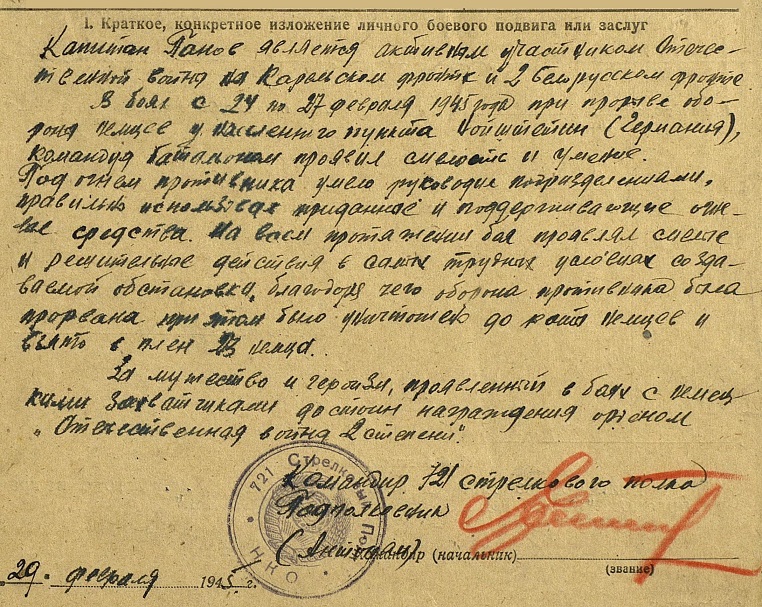 I. Краткое, конкретное изложение личного боевого подвига или заслуг
Капитан Панов является активным участником Отече-
ственной войны на Карельском фронте и 2 Белорусском фронте
В боях с 24 по 27 февраля 1945 года при прорыве обо-
роны немцев у населенного пункта (Германия),
командуя батальоном проявил смелость и умение.
Под огнем противника умело руководил подразделениями,
правильно использовал приданные и поддерживающие огне-
вые средства. На всем протяжении боя проявлял смелые
и решительные действия в самых трудных условиях созда-
ваемой обстановки, благодаря чего оборона противника была
прорвана при этом было уничтожено до роты немцев и
взято в плен 23 немца.
За мужество и героизм, проявленный в боях с немец-
кими захватчиками достоин награждения орденом
"Отечественная война 2 степени".
Командир 721 стрелкового полка
Подполковник
Командир (начальник)
(звание)
29. февраля 1945 г.
721 Стрелковый Полк
НКО